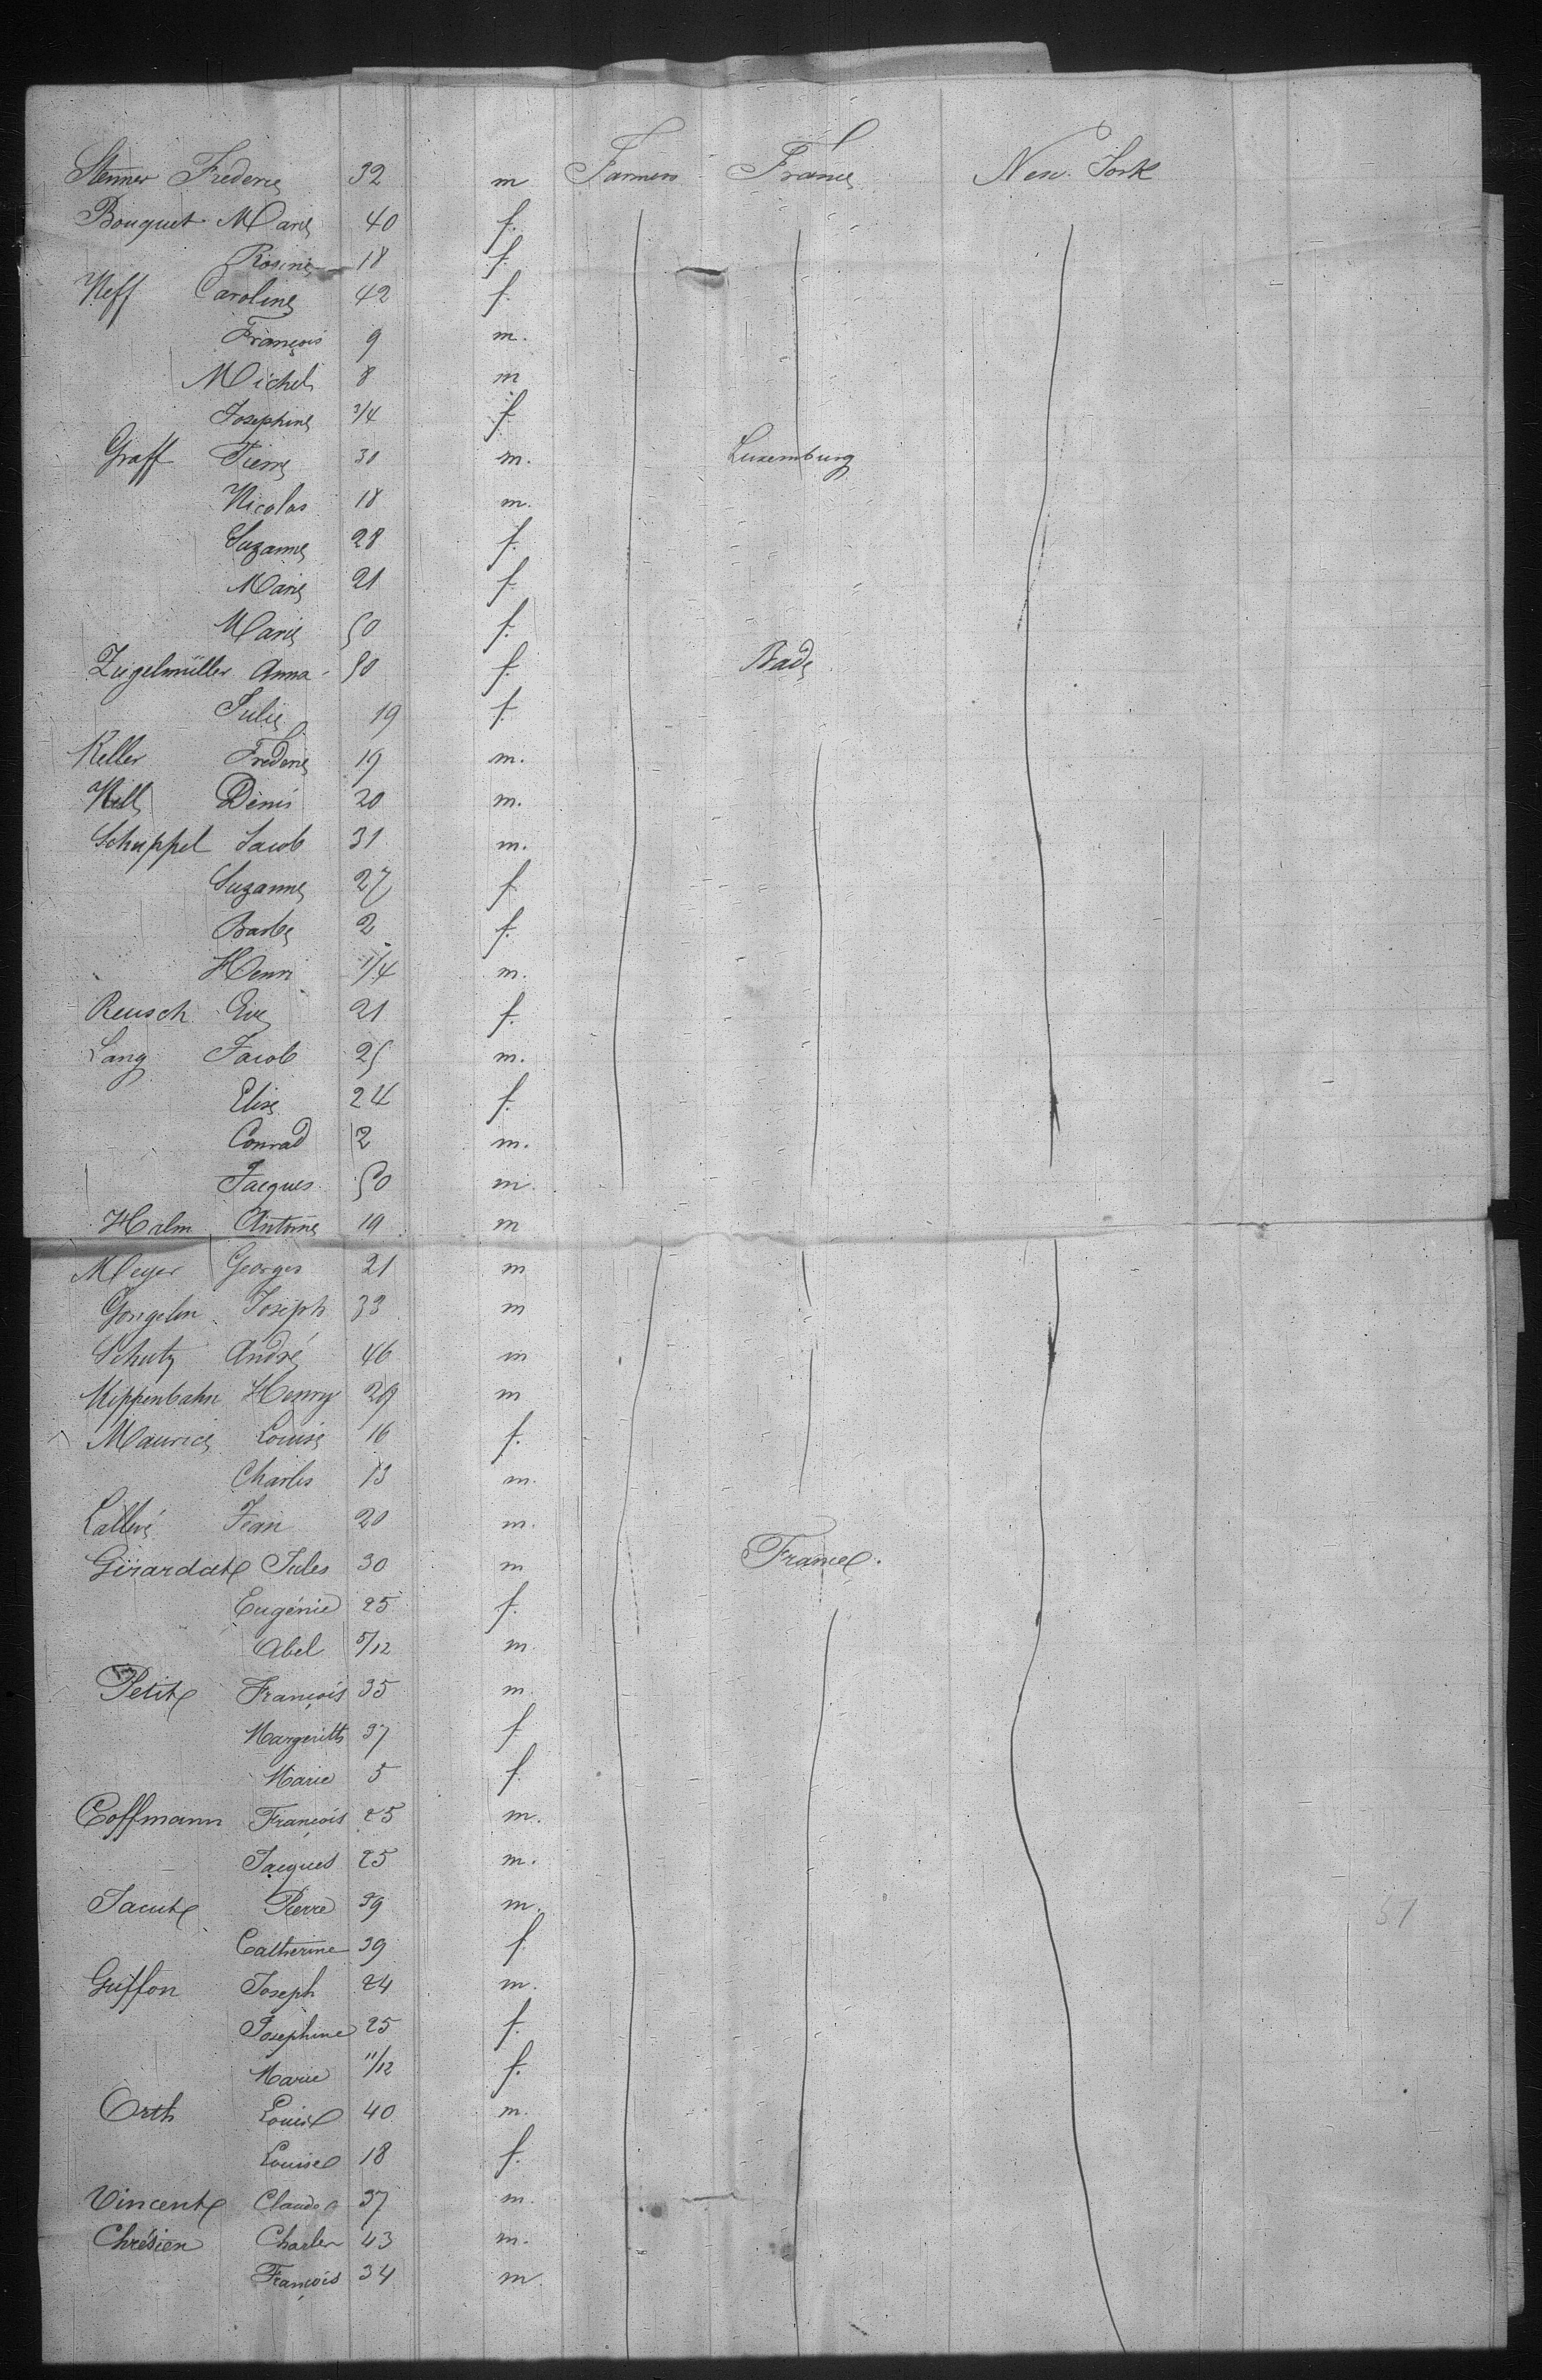 Stenner Frederic 32 m Farmers France New York
Bouquet Marie 40 f.
Rosine 18 f.
Neff Caroline 42 f.
François 9 m.
Michel 8 m
Josephine 3/4 f
Graff Pierre 30 m. Luxemburg
Nicolas 18 m.
Suzanne 28 f.
Marie 21 f
Marie 50 f.
Zugelmüller Anna 50 f. Bade
Julie 19 f.
Keller Frederic 19 m.
Denis 20 m.
Schuppel Jacob 31 m.
Suzanne 27 f
Barbe 2 f.
Henri 1/4 m.
Reusch Eve 21 f.
Lang Jacob 25 m.
Elise 24 f.
Conrad 2 m.
Jacques 50 m.
Halm Antoine 19 m
Meyer Georges 21 m
Gongelin Joseph 33 m
Schutz André 46 m
Kippenbahn Henry 29 m
Maurice Louise 16 f.
Charles 13 m.
Jean 20 m.
Girardat Jules 30 m France.
Eugénie 25 f.
Abel 5/12 m.
Petit François 35 m.
Margeritte 37 f
Marie 5 f.
Coffmann François 25 m.
Jacques 25 m.
Jacut Pierre 39 m.
Catherine 39 f
51
Guffon Joseph 24 m.
Josephine 25 f.
Marie 11/12 f.
Orth Louis 40 m.
Louise 18 f.
Vincent Claude 37 m.
Chrésien Charles 43 m.
François 34 m